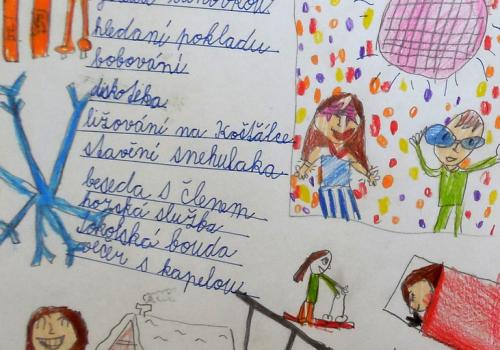 hledaní pokladu
bobování
diskotéka
ližování na Košťálce
stavění snehulaka
beseda s členem
horská služba
sokolská bouda
večer s kapelou